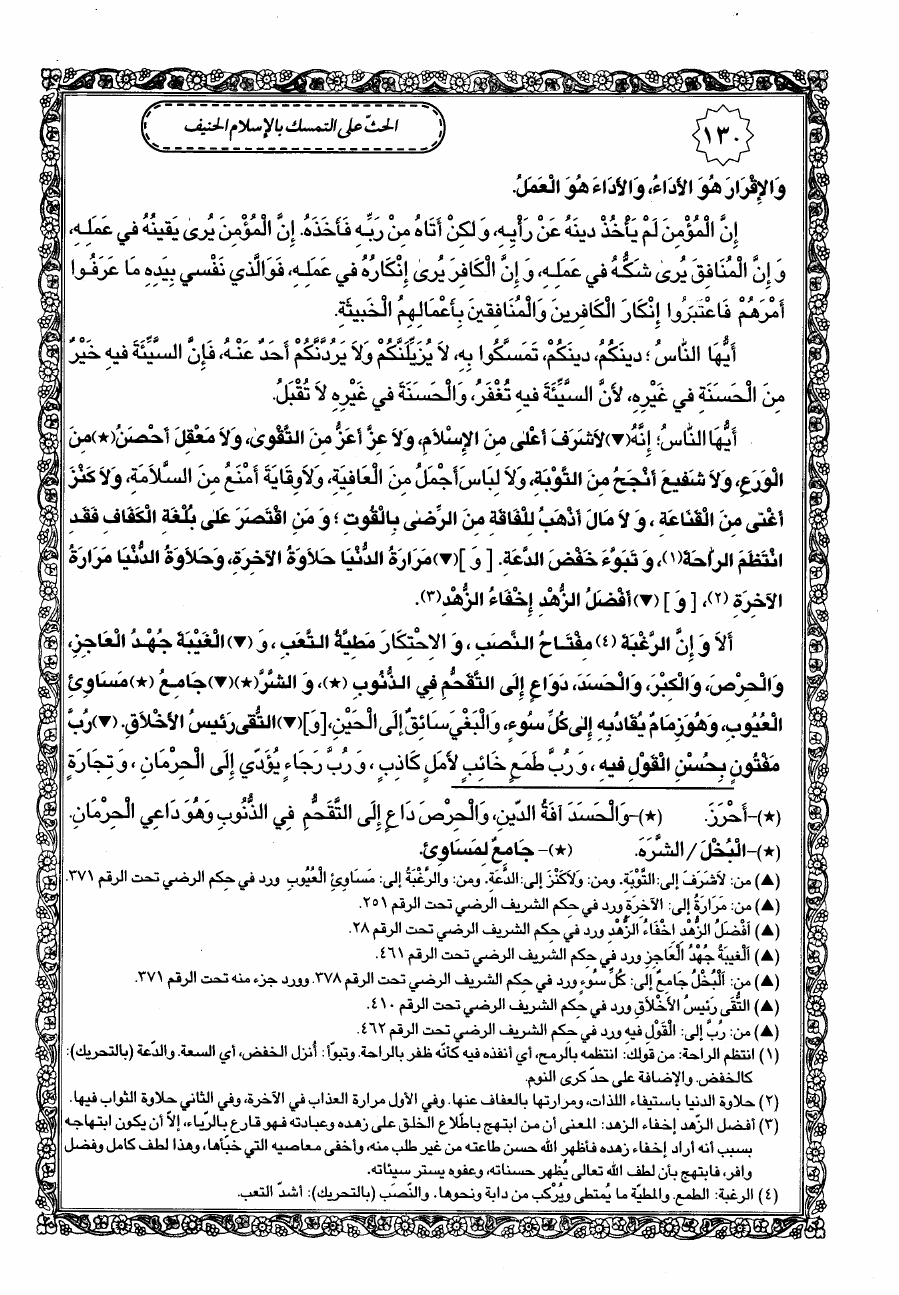 ١٣٠
الحثّ على التمسك بالإسلام الحنيف
وَالإِقْرَارَ هُوَ الأَدَاءُ، وَالأَدَاءَ هُوَ الْعَمَلُ.
إِنَّ الْمُؤْمِنَ لَمْ يَأْخُذْ دينَهُ عَنْ رَأْيِهِ، وَلكِنْ أَتَاهُ مِنْ رَبِّهِ فَأَخَذَهُ. إِنَّ الْمُؤْمِنَ يُرى يَقينُهُ في عَمَلِهِ،
وَإِنَّ الْمُنَافِقَ يُرى شَكُّهُ في عَمَلِهِ، وَإِنَّ الْكَافِرَ يُرى إِنْكَارُهُ في عَمَلِهِ، فَوَالَّذي نَفْسي بِيَدِهِ مَا عَرَفُوا
أَمْرَهُمْ فَاعْتَبِرُوا إِنْكَارَ الْكَافِرينَ وَالْمُنَافِقينَ بِأَعْمَالِهِمُ الْخَبيثَةِ.
أَيُّهَا النَّاسُ؛ دينَكُمْ، دينَكُمْ، تَمَسَّكُوا بِهِ، لاَ يُزيلَنَّكُمْ وَلاَ يَرُدَّنَّكُمْ أَحَدٌ عَنْهُ، فَإِنَّ السَّيِّئَةَ فيهِ خَيْرٌ
مِنَ الْحَسَنَةِ في غَيْرِهِ، لأَنَّ السَّيِّئَةَ فيهِ تُغْفَرُ، وَالْحَسَنَةَ في غَيْرِهِ لاَ تُقْبَلُ.
أَيُّهَا النَّاسُ؛ إِنَّهُ(▼)لاَشَرَفَ أَعْلى مِنَ الإِسْلاَمِ، وَلاَ عِزَّ أَعَزُّ مِنَ التَّقْوى، وَلاَ مَعْقِلَ أَحْصَنُ(★)مِنَ
الْوَرَعِ، وَلاَ شَفيعَ أَنْجَحُ مِنَ التَّوْبَةِ، وَلاَ لِبَاسَ أَجْمَلُ مِنَ الْعَافِيَةِ، وَلاَوِقَايَةَ أَمْنَعُ مِنَ السَّلاَمَةِ، وَلاَ كَنْزَ
أَغْنى مِنَ الْقَنَاعَةِ، وَلاَ مَالَ أَذْهَبُ لِلْفَاقَةِ مِنَ الرِّضى بِالْقُوتِ؛ وَمَنِ اقْتَصَرَ عَلى بُلْغَةِ الْكَفَافِ فَقَدِ
انْتَظَمَ الرَاحَةَ(١)، وَتَبَوَّءَ خَفْضَ الدَّعَةِ. [وَ](▼)مَرَارَةُ الدُّنْيَا حَلاَوَةُ الآخِرَةِ، وَحَلاَوَةُ الدُّنْيَا مَرَارَةُ
الآخِرَةِ (٢)، [وَ](▼)أَفْضَلُ الزُّهْدِ إِخْفَاءُ الزُّهْدِ(٣).
أَلاَ وَإِنَّ الرَّغْبَةَ (٤) مِفْتَاحُ النَّصَبِ، وَالاِحْتِكَارَ مَطِيَّةُ التَّعَبِ، وَ(▼)الْغيبَةَ جُهْدُ الْعَاجِزِ،
وَالْحِرْصَ، وَالْكِبْرَ، وَالْحَسَدَ، دَوَاعٍ إِلَى التَّقَحُّمِ فِي الذُّنُوبِ (★)، وَالشَّرَّ(★)(▼)جَامِعُ(★)مَسَاوِئِ
الْعُيُوبِ، وَهُوَزِمَامٌ يُقَادُبِهِ إِلى كُلِّ سُوءٍ، وَالْبَغْيَ سَائِقٌ إِلَى الْحَيْنِ، [وَ](▼)التُّقى رَئيسُ الأَخْلاَقِ. (▼)رُبَّ
مَفْتُونٍ بِحُسْنِ الْقَوْلِ فيهِ، وَرُبَّ طَمَعٍ خَائِبٍ لأَمَلٍ كَاذِبٍ، وَرُبَّ رَجَاءٍ يُؤَدّي إِلَى الْحِرْمَانِ، وَتِجَارَةٍ
(★)-أَحْرَزَ. (★)-وَالْحَسَدَ آفَةُ الدّينِ، وَالْحِرْصَ دَاعٍ إِلَى التَّقَحُّمِ فِي الذُّنُوبِ وَهُوَ دَاعِي الْحِرْمَانِ.
(★)-الْبُخْلَ / الشَّرَهَ. (★)- جَامِعٌ لِمَسَاوِئِ.
(▲) من: لاَشَرَفَ إلى: التَّوْبَةِ. ومن: وَلاَكَنْزَ إلى: الدَّعَةِ. ومن: والرَّغْبَةُ إلى: مَسَاوِئِ الْعُيُوبِ ورد في حكم الرضي تحت الرقم ٣٧١.
(▲) من: مَرَارَةُ إلى: الآخِرَةِ ورد في حكم الشريف الرضي تحت الرقم ٢٥١.
(▲) أَفْضَلُ الزُّهْدِ اخْفَاءُ الزُّهْدِ ورد في حكم الشريف الرضي تحت الرقم ٢٨.
(▲) اَلْغيبَةُ جُهْدُ الْعَاجِزِ ورد في حكم الشريف الرضي تحت الرقم ٤٦١.
(▲) من: اَلْبُخْلُ جَامِعٌ إلى: كُلِّ سُوءٍ ورد في حكم الشريف الرضي تحت الرقم ٣٧٨. وورد جزء منه تحت الرقم ٣٧١.
(▲) التُّقَى رَئيسُ الأَخْلاَقِ ورد في حكم الشريف الرضي تحت الرقم ٤١٠.
(▲) من: رُبَّ إلى: الْقَوْلِ فيهِ ورد في حكم الشريف الرضي تحت الرقم ٤٦٢.
(١) انتظم الراحة: من قولك: انتظمه بالرمح، أي أنفذه فيه كأنّه ظفر بالراحة. وتبوّأ: أُنزل الخفض، أي السعة. والدّعة (بالتحريك):
كالخفض. والإضافة على حدّ كرى النوم.
(٢) حلاوة الدنيا باستيفاء اللذات، ومرارتها بالعفاف عنها. وفي الأول مرارة العذاب في الآخرة، وفي الثاني حلاوة الثواب فيها.
(٣) أفضل الزّهد إخفاء الزهد: المعنى أن من ابتهج باطّلاع الخلق على زهده وعبادته فهو قارع بالرّياء، إلاّ أن يكون ابتهاجه
بسبب أنه أراد إخفاء زهده فأظهر الله حسن طاعته من غير طلب منه، وأخفى معاصيه التي خبّأها، وهذا لطف كامل وفضل
وافر، فابتهج بأن لطف الله تعالى يُظهر حسناته، وعفوه يستر سيئاته.
(٤) الرغبة: الطمع. والمطيّة ما يُمتطى ويُرْكب من دابة ونحوها. والنّصَب (بالتحريك): أشدّ التعب.